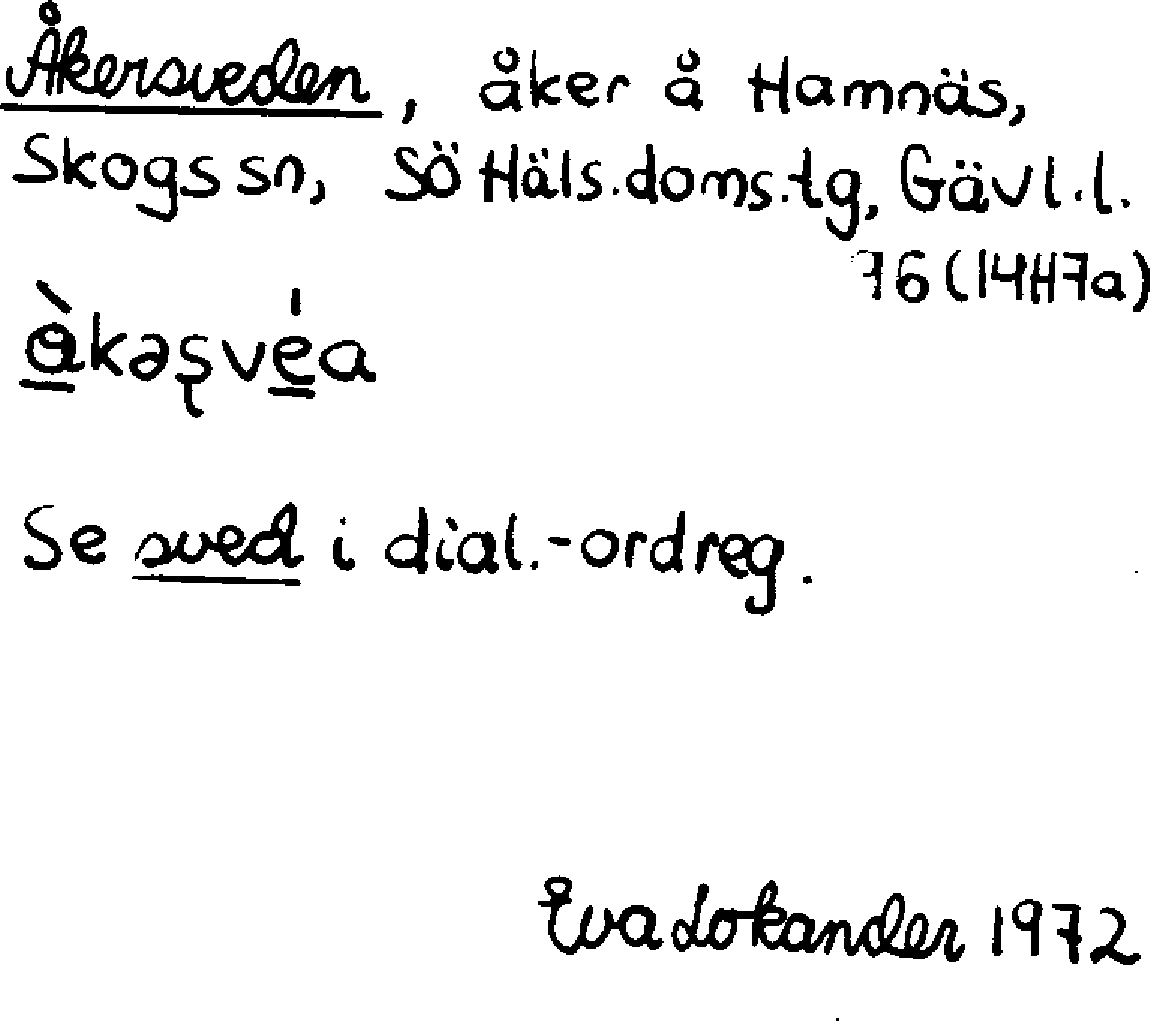 Åkersveden, åker å Hamnäs,
Skogs sn, Sö Häls.doms.tg, Gävl.l.
76 (14H7a)
àkəʂvéa
Se sved i dial.-ordreg.
Eva Lokander 1972